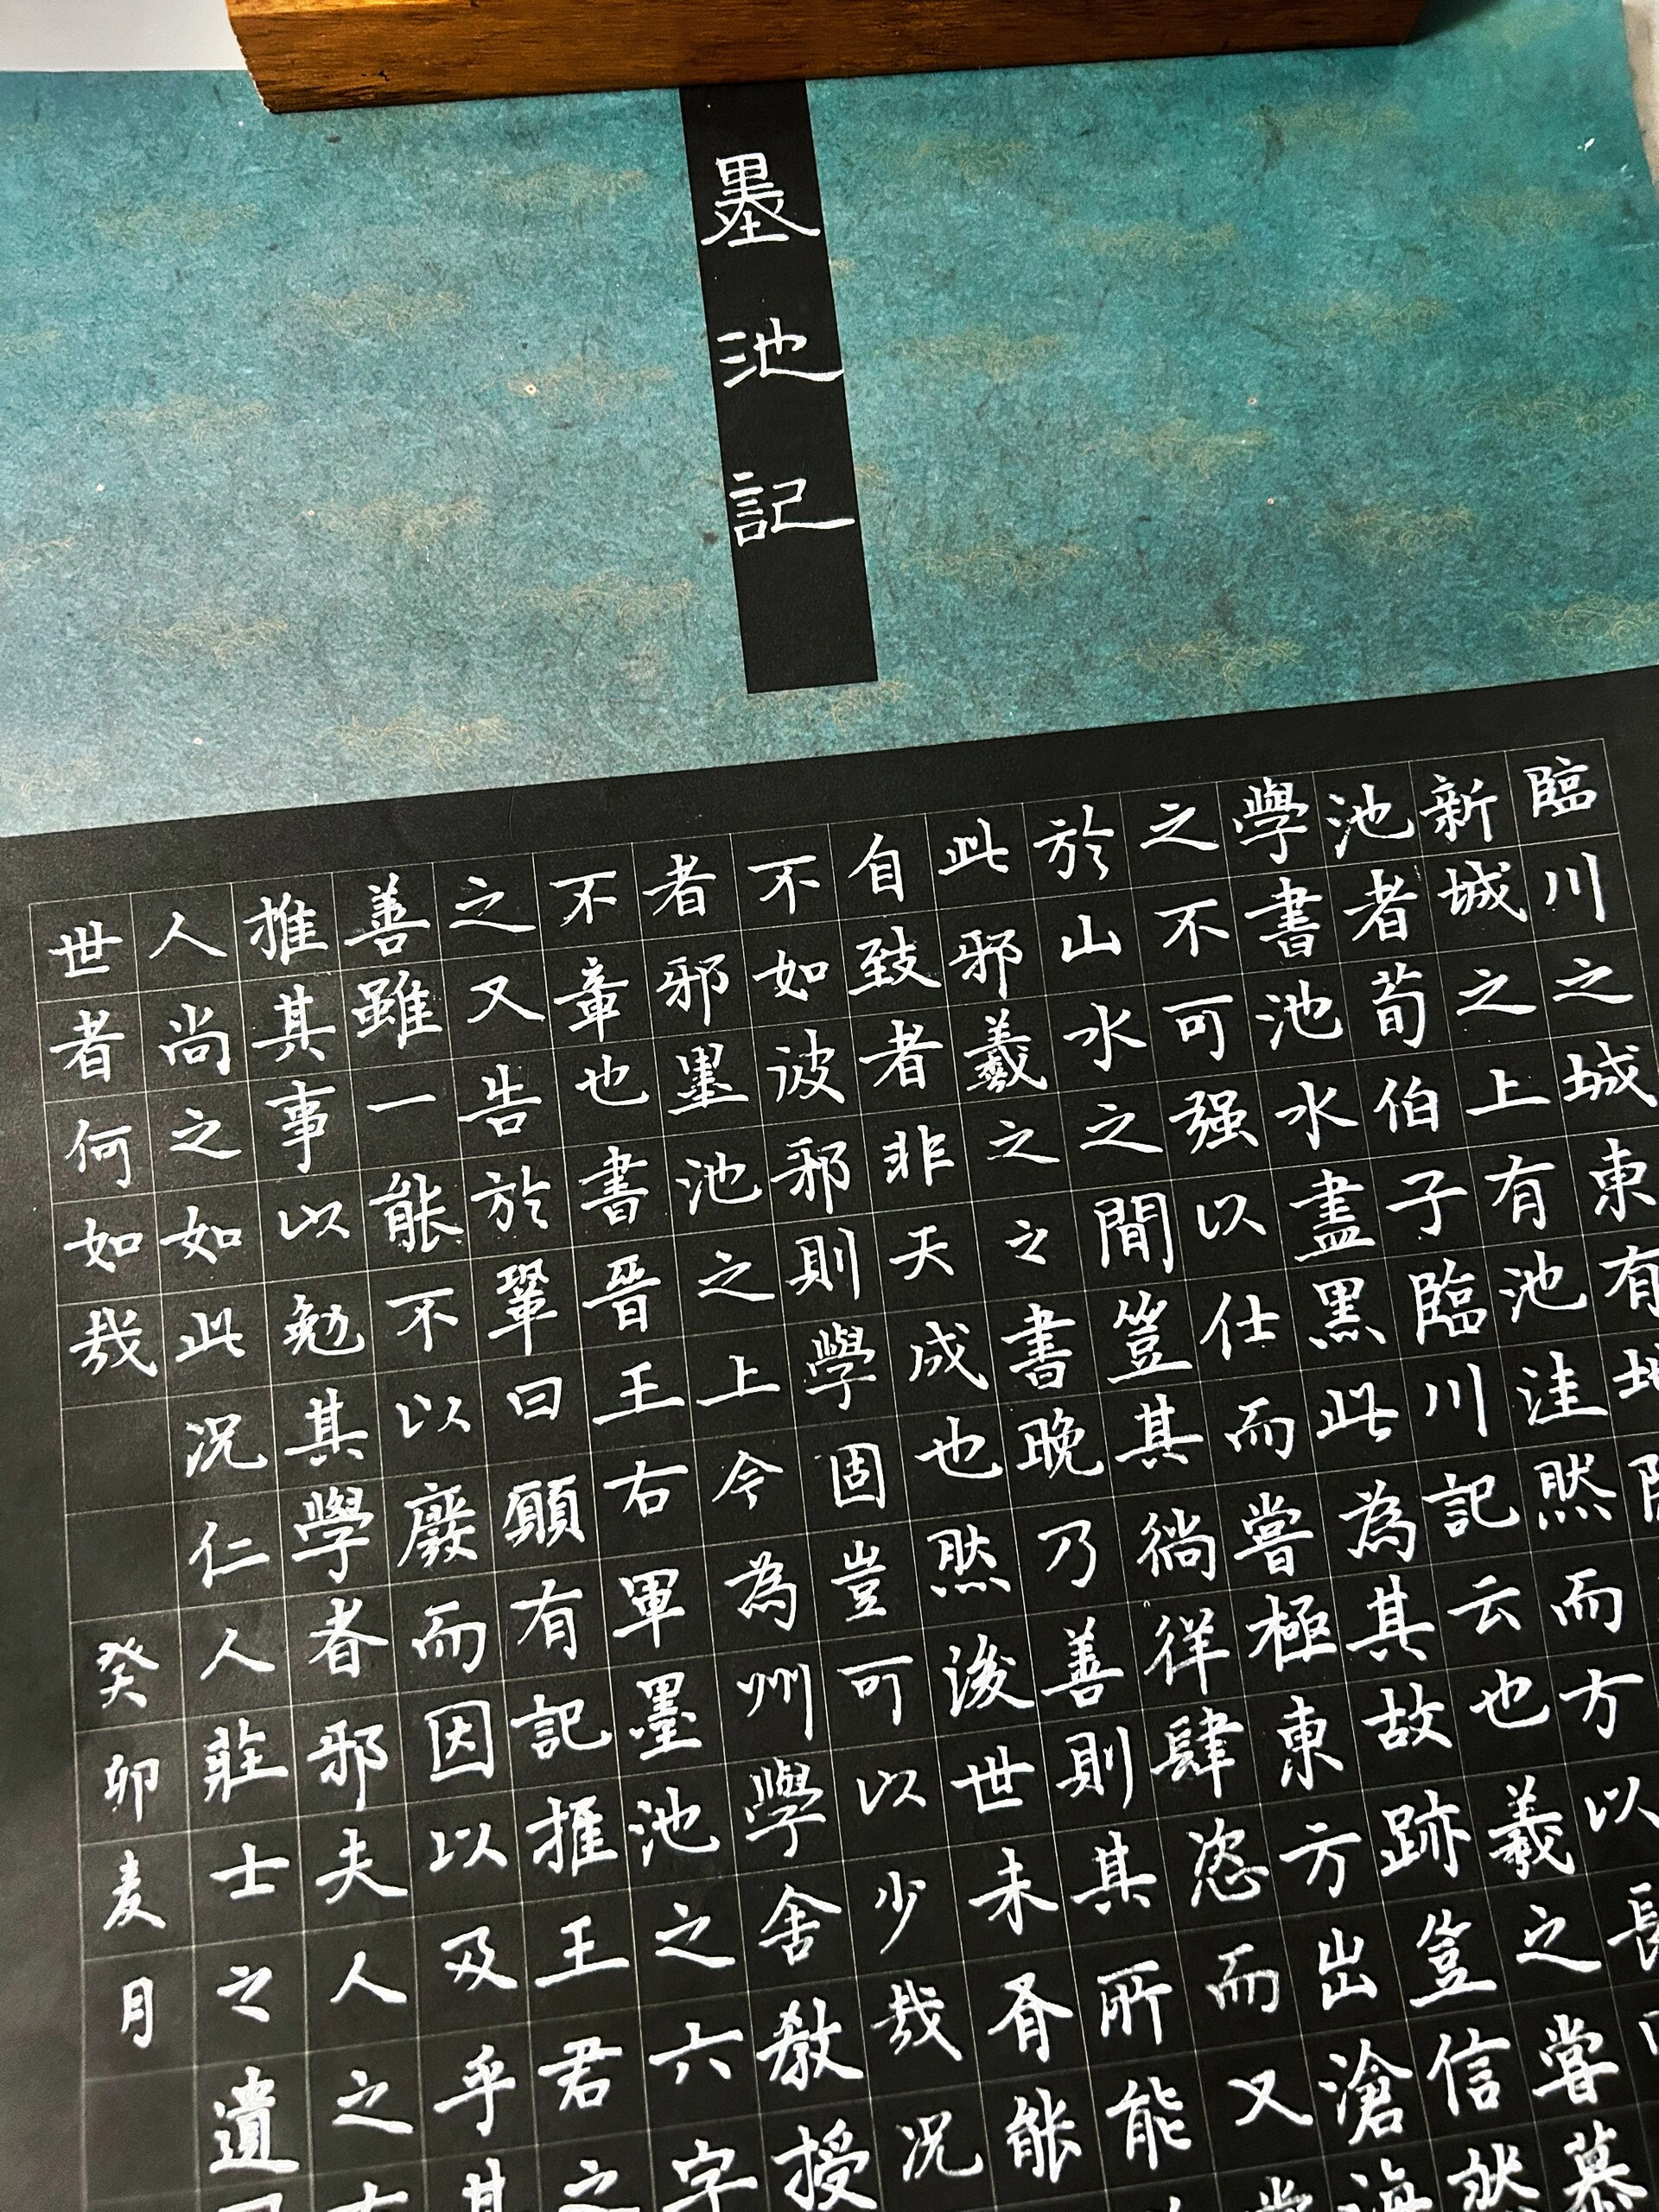 墨池記
臨川之城東有地
新城之上有池洼然而方以長
池者荀伯子臨川記云也羲之嘗慕
學書池水盡黑此為其故跡豈信然
之不可强以仕而嘗極東方出滄海
於山水之間豈其徜徉肆恣而又嘗
此邪羲之之書晚乃善則其所能
自致者非天成也然後世未有能
不如彼邪則學固豈可以少哉況
者邪墨池之上今為州學舍教授
不章也書晉王右軍墨池之六字
之又告於鞏曰願有記推王君之
善雖一能不以廢而因以及乎其
推其事以勉其學者邪夫人之有
人尚之如此況仁人莊士之遺
世者何如哉 癸卯麦月